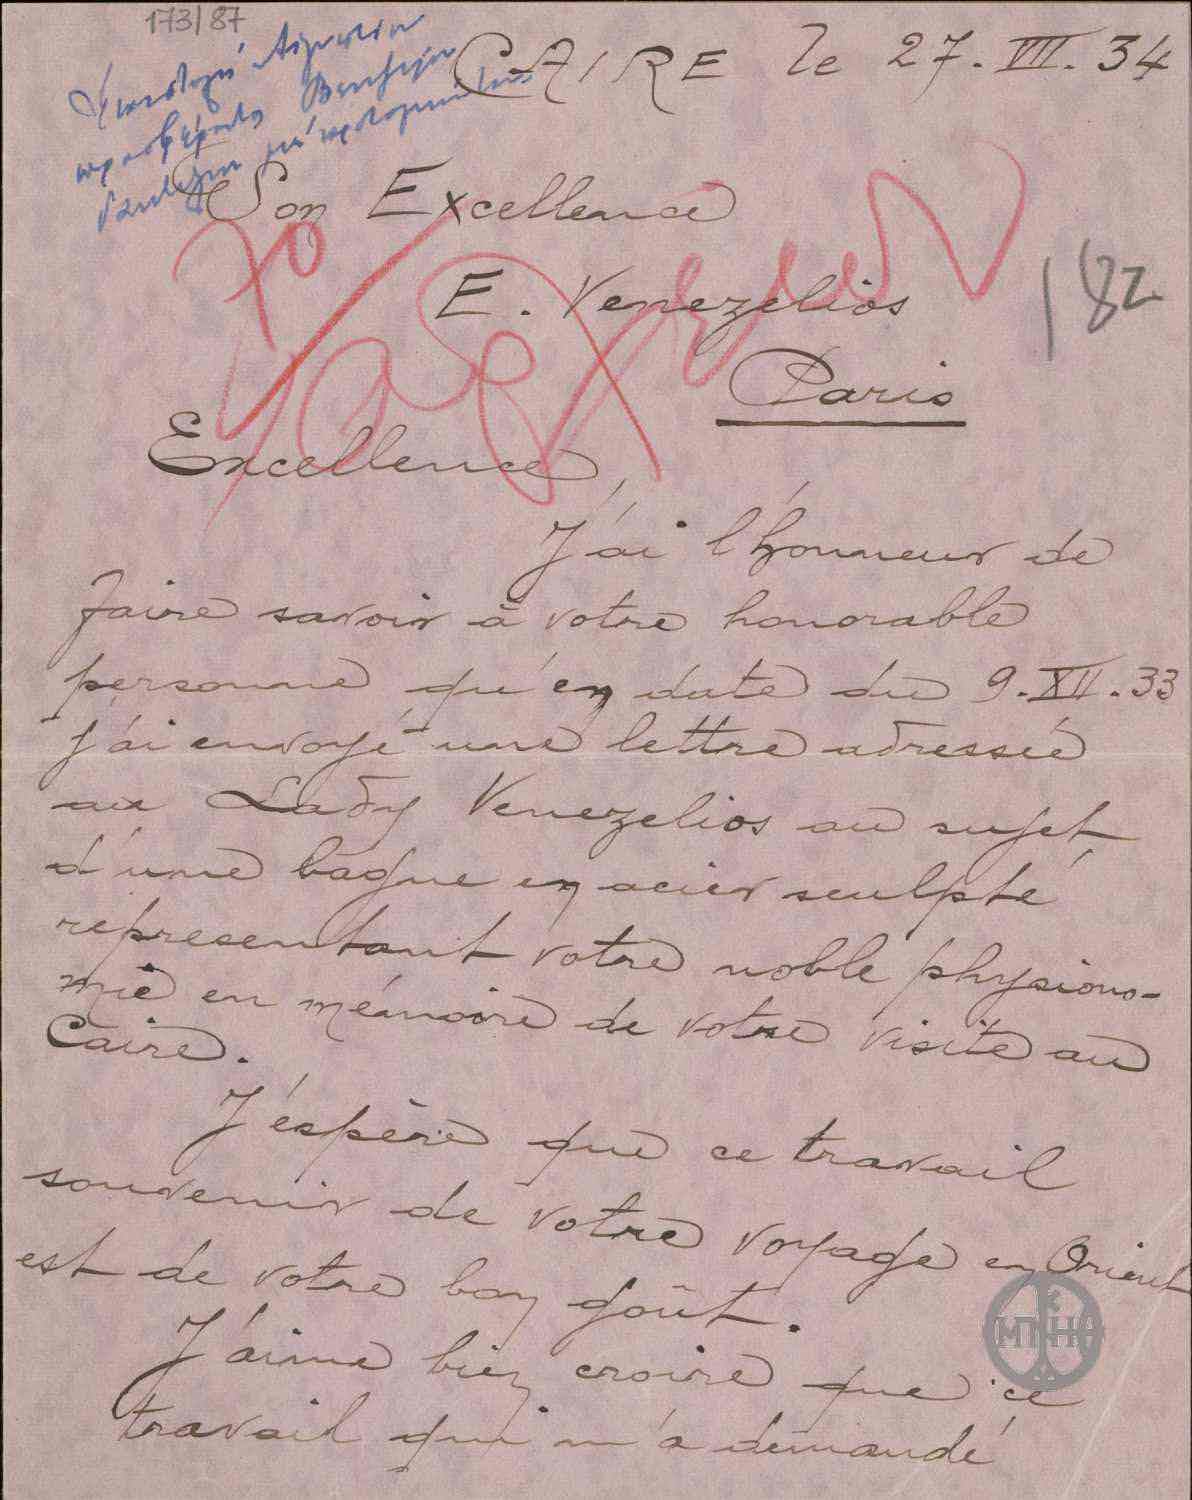 173/87
Ἐπιστολή Αἰγυπτίου
προσφέροντος Βενιζέλῳ
δακτυλίδι
CAIRE le 27.VII.34
Son Excellence
E. Venezelios
182
Paris
Excellence,
J'ai l'honneur de
faire savoir à votre honorable
personne qu'en date du 9.XII.33
j'ai envoyé une lettre adressée
au Lady Venezelios au sujet
d'une bague en acier sculpté
representant votre noble physiono-
mie en mémoire de votre visite au
Caire.
J'éspère que ce travail
souvenir de votre voyage en Orient
est de votre bon goût.
J'aime bien croire que ce
travail qui m'a demandé